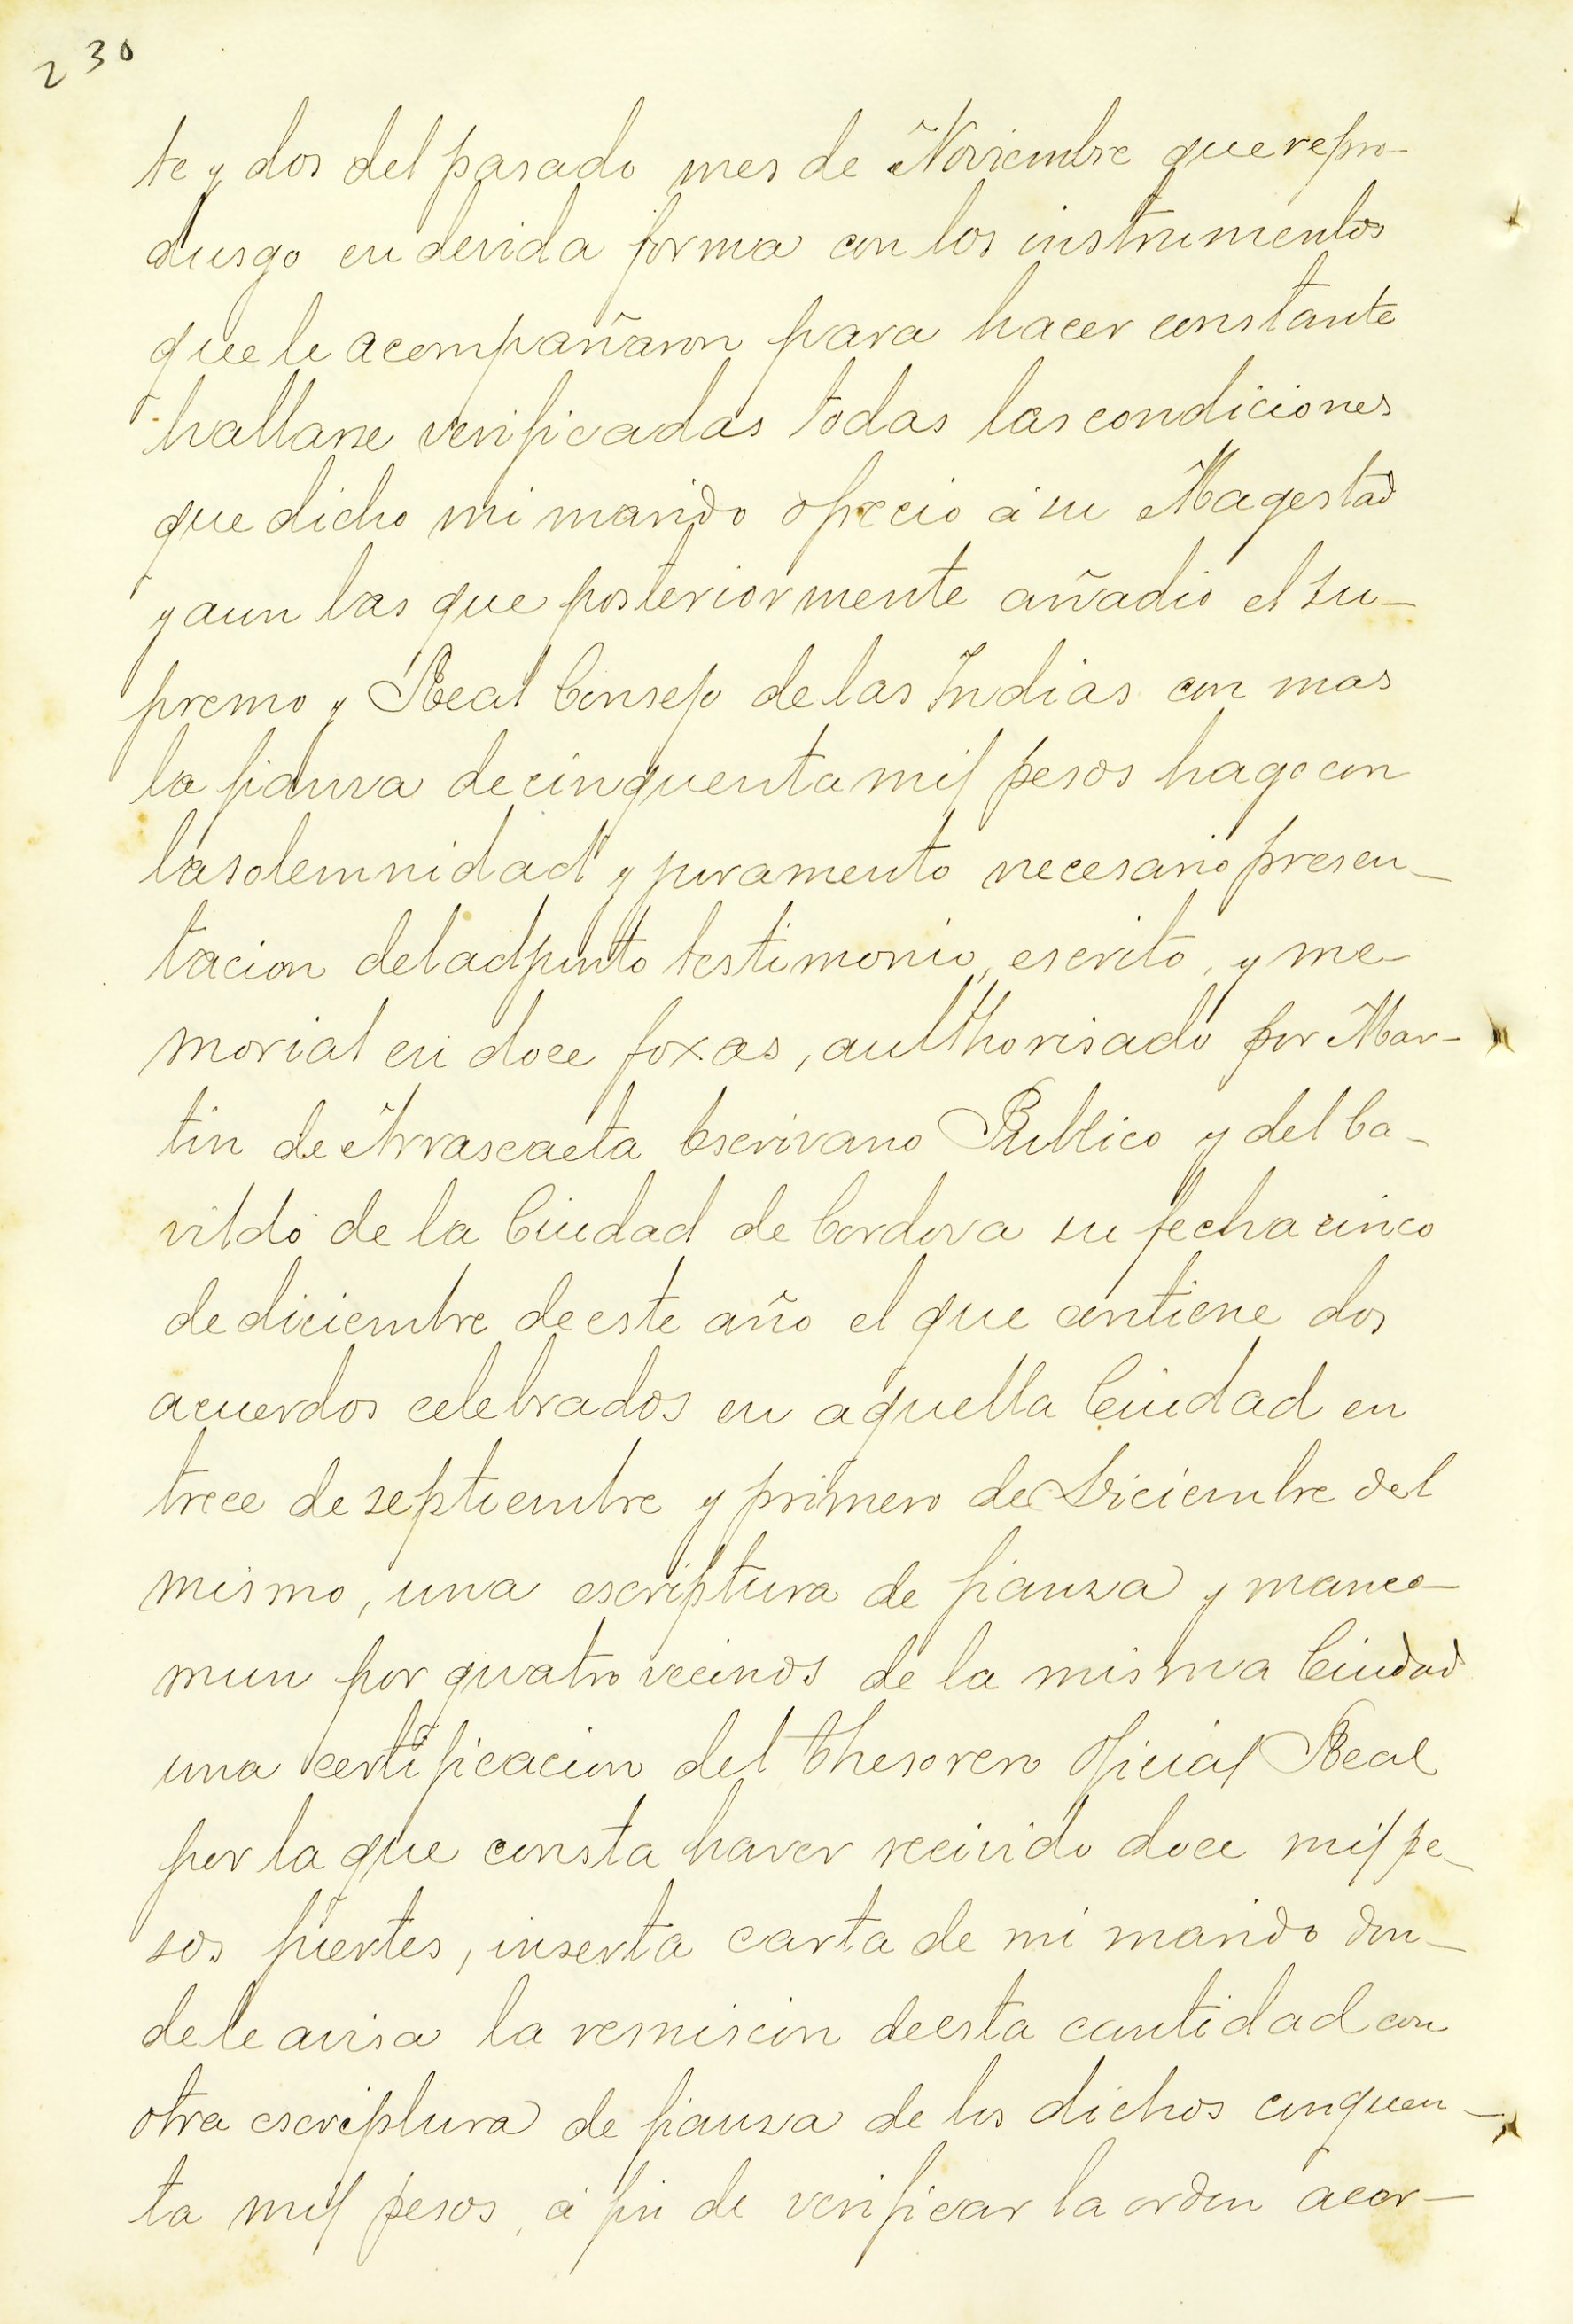 230
te y dos del pasado mes de Noviembre que repro-
dusgo en devida forma con los instrumentos
que le acompañaron para hacer constante
hallarse verificadas todas las condiciones
que dicho mi marido ofrecio á su Magestad
y aun las que posteriormente añadio el Su-
premo y Real Consejo de las Indias con mas
la fianza de cinquenta mil pesos hago con
la solemnidad y juramento necesario presen-
tacion del adjunto testimonio, escrito, y me-
morial en doce foxas, aulthorisado por Mar-
tin de Arrascaeta Escrivano Publico y del Ca-
vildo de la Ciudad de Cordova su fecha cinco
de diciembre de este año el que contiene dos
acuerdos celebrados en aquella Ciudad en
trece de septiembre y primero de Diciembre del
mismo, una escriptura de fianza y manco-
mun por quatro vecinos de la misma Ciudad
una certificacion del Thesorero Oficial Real
por la que consta haver recivido doce mil pe-
sos fuertes, inserta carta de mi marido don-
de le avisa la remision de esta cantidad con
otra escriptura de fianza de los dichos cinquen-
ta mil pesos, á fin de verificar la orden acor-